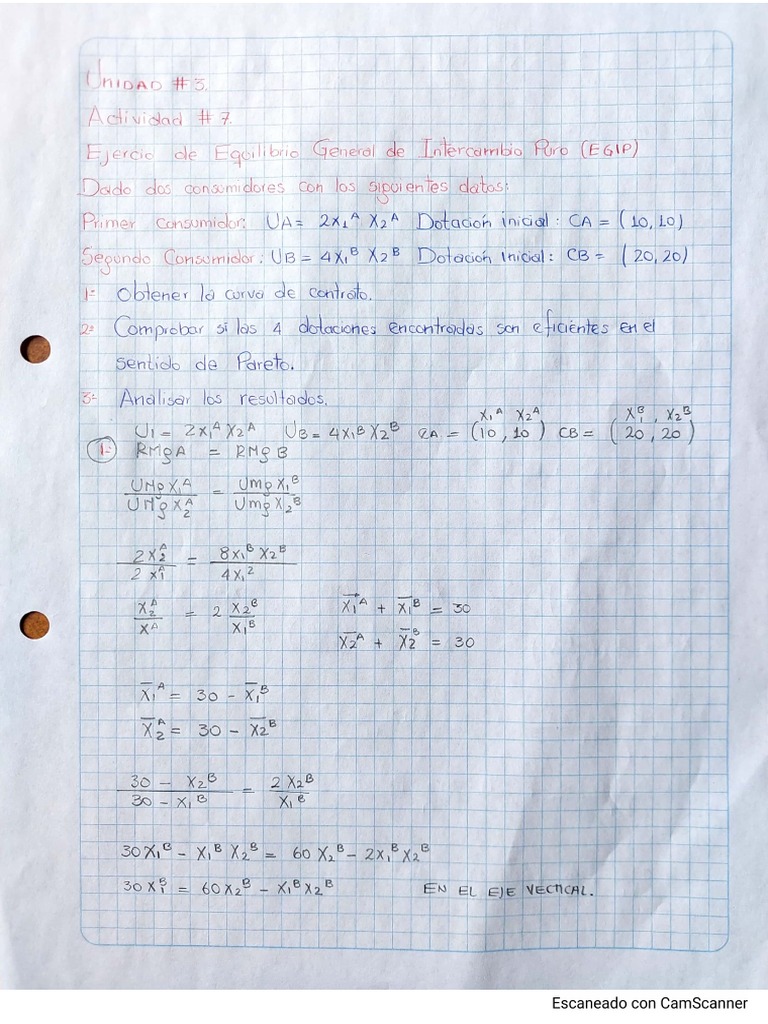 UNIDAD # 3.
Actividad # 7.
Ejercio de Equilibrio General de Intercambio Puro (EGIP)
Dado dos consumidores con los siguientes datos:
Primer Consumidor: UA = 2x₁ᴬ X₂ᴬ Dotación inicial: CA = (10,10)
Segundo Consumidor: UB = 4X₁ᴮ X₂ᴮ Dotación Inicial: CB = (20,20)
1- Obtener la curva de contrato.
2- Comprobar si las 4 dotaciones encontradas son eficientes en el
sentido de Pareto.
3- Analisar los resultados.
X₁ᴬ X₂ᴬ X₁ᴮ, X₂ᴮ
U₁ = 2x₁ᴬ X₂ᴬ UB = 4X₁ᴮ X₂ᴮ CA = (10, 10) CB = (20, 20)
1- RMgA = RMgB
UMg X₁ᴬ / UMg X₂ᴬ = Umg X₁ᴮ / Umg X₂ᴮ
2X₂ᴬ / 2 X₁ᴬ = 8X₁ᴮ X₂ᴮ / 4X₁²
X₂ᴬ / Xᴬ = 2 X₂ᴮ / X₁ᴮ X̄₁ᴬ + X̄₁ᴮ = 30
X̄₂ᴬ + X̄₂ᴮ = 30
X̄₁ᴬ = 30 - X̄₁ᴮ
X̄₂ᴬ = 30 - X̄₂ᴮ
30 - X₂ᴮ / 30 - X₁ᴮ = 2 X₂ᴮ / X₁ᴮ
30X₁ᴮ - X₁ᴮ X₂ᴮ = 60 X₂ᴮ - 2X₁ᴮ X₂ᴮ
30 X₁ᴮ = 60X₂ᴮ - X₁ᴮ X₂ᴮ EN EL EJE VECTICAL.
Escaneado con CamScanner